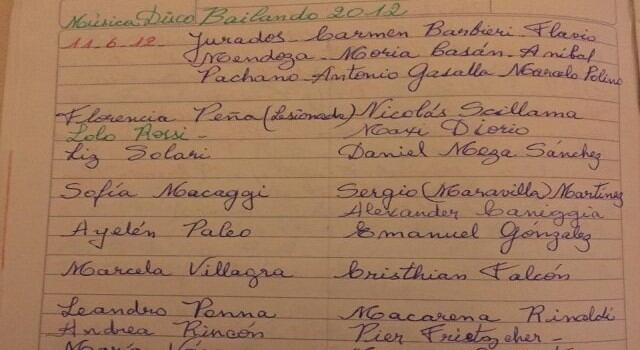 Música Disco Bailando 2012
11.6.12. Jurados Carmen Barbieri - Flavio
Mendoza - Moria Casán - Aníbal
Pachano - Antonio Gasalla Marcelo Polino
Florencia Peña (Lesionada) Nicolás Scillama
Lolo Rossi - Maxi Diorio
Liz Solari Daniel Meza Sánchez
Sofía Macaggi Sergio (Maravilla) Martínez
Alexander Caniggia
Ayelén Paleo Emanuel Gónzalez
Marcela Villagra Cristhian Falcón
Leandro Penna Macarena Rinaldi
Andrea Rincón Pier Fritzcher -
María